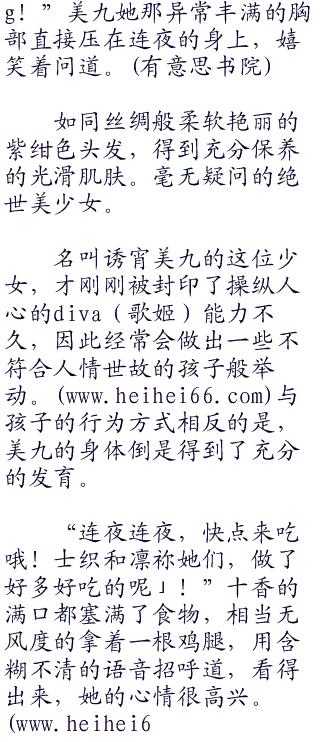 g！”美九她那异常丰满的胸
部直接压在连夜的身上，嬉
笑着问道。(有意思书院)
如同丝绸般柔软艳丽的
紫绀色头发，得到充分保养
的光滑肌肤。毫无疑问的绝
世美少女。
名叫诱宵美九的这位少
女，才刚刚被封印了操纵人
心的diva（歌姬）能力不
久，因此经常会做出一些不
符合人情世故的孩子般举
动。(www.heihei66.com)与
孩子的行为方式相反的是，
美九的身体倒是得到了充分
的发育。
“连夜连夜，快点来吃
哦！士织和凛祢她们，做了
好多好吃的呢」！”十香的
满口都塞满了食物，相当无
风度的拿着一根鸡腿，用含
糊不清的语音招呼道，看得
出来，她的心情很高兴。
(www.heihei6